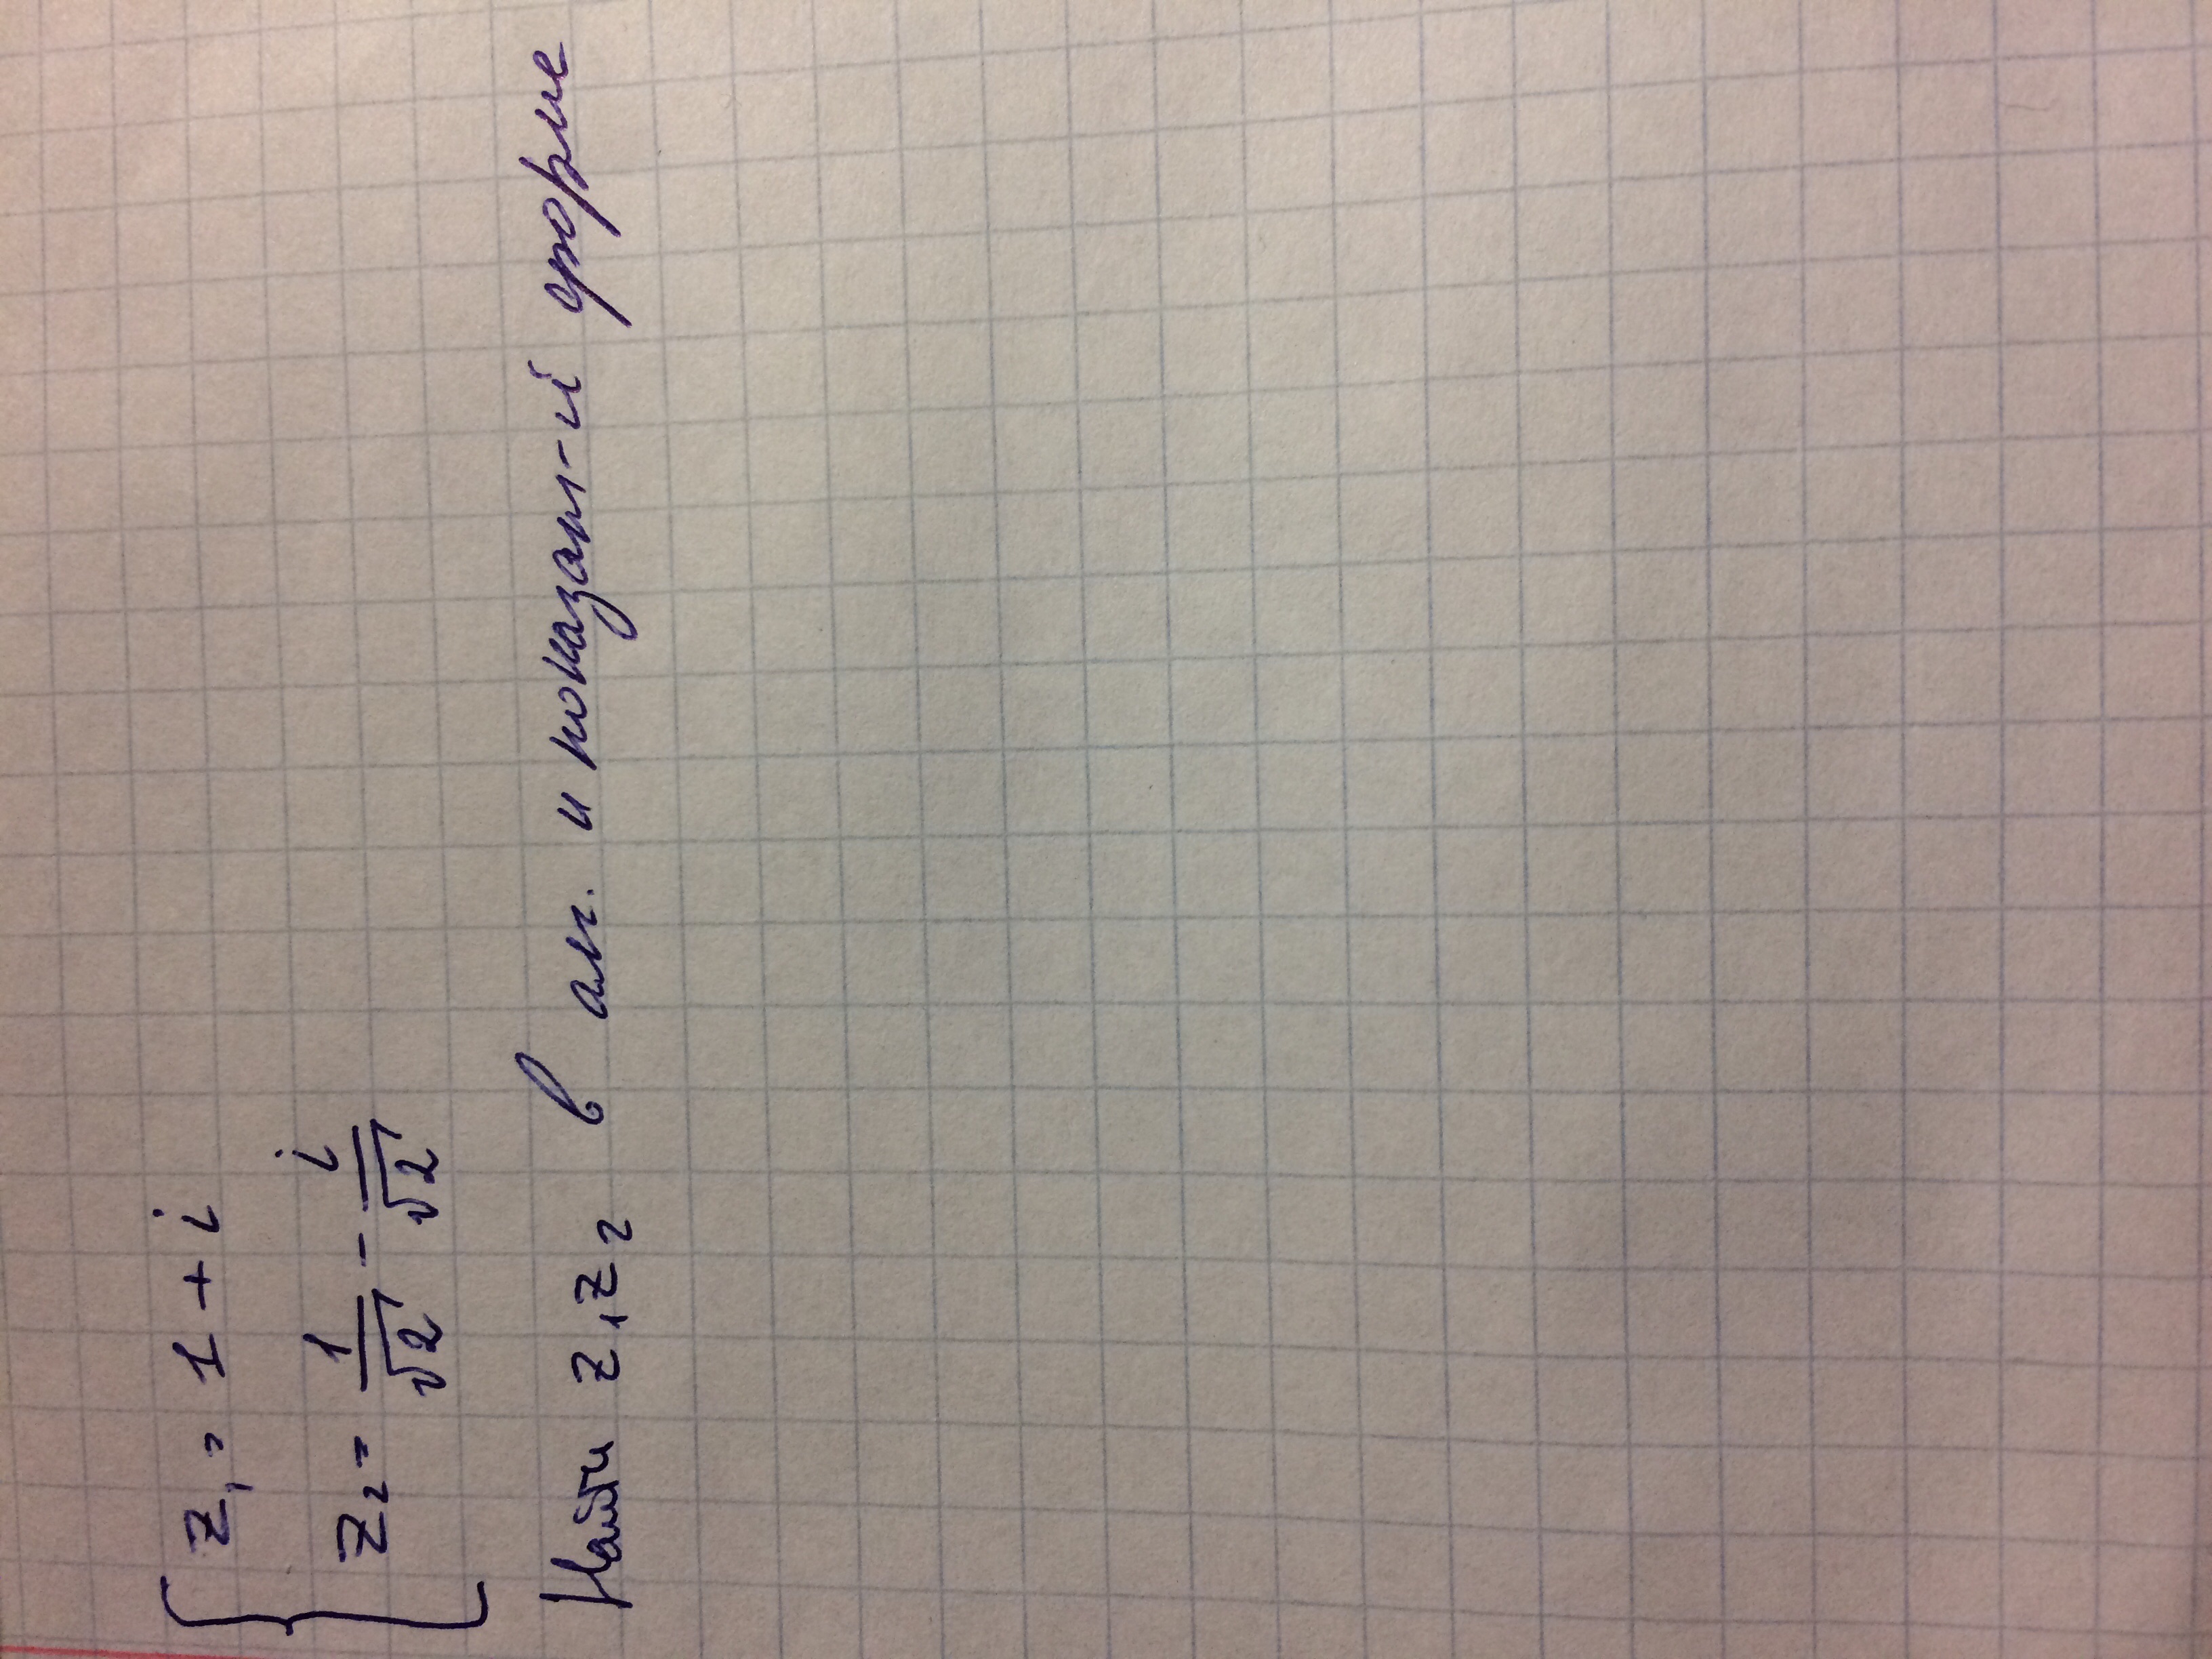 z₁ = 1 + i
z₂ = 1/√2 - i/√2
Найти z₁z₂ в алг. и показат-й форме